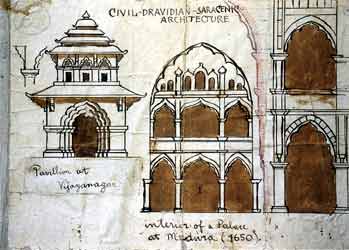 CIVIL-DRAVIDIAN-SARACENIC
ARCHITECTURE
Pavilion at
Vijayanagar
interior of a Palace
at Madura (1650).